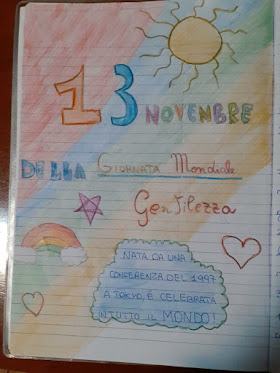 13 NOVENBRE
DELLA GIORNATA MONDIALE
GENTILEZZA
NATA DA UNA
CONFERENZA DEL 1997
A TOKYO, É CELEBRATA
IN TUTTO IL MONDO!